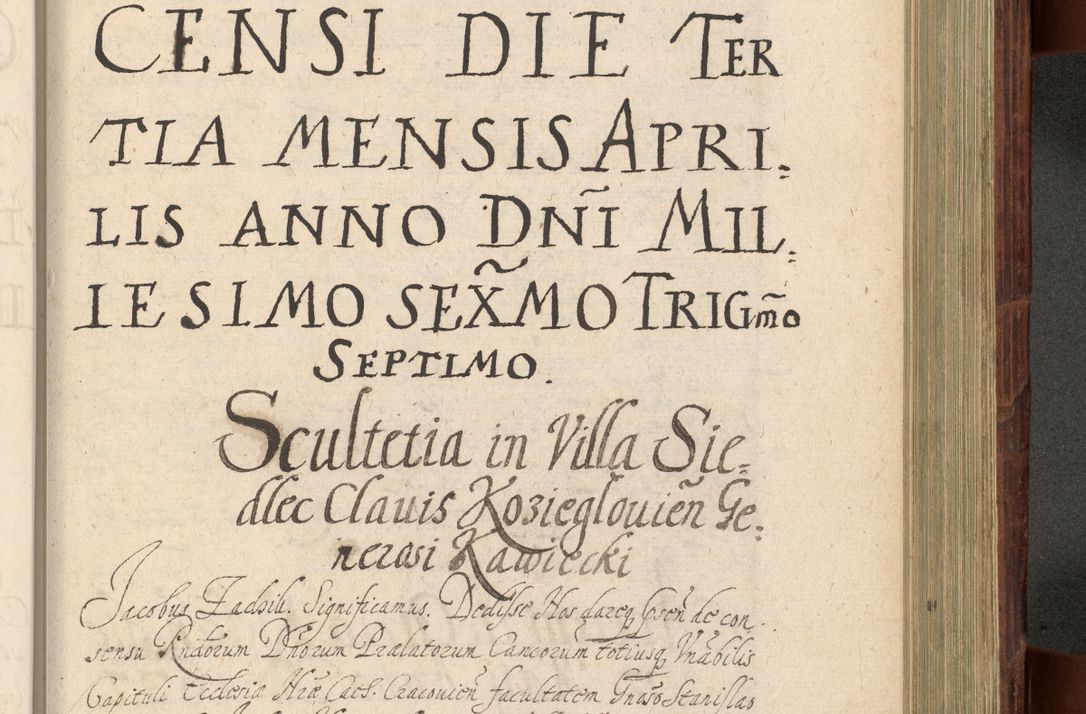 CENSI DIE TER
TIA MENSIS APRI=
LIS ANNO DÑI MIL=
IESIMO SEX̃MO TRIGm̃o
SEPTIMO.
Scultetia in Villa Sie=
dlec Clauis Kozieglouieñ Ge=
nerosi Kawiecki
Jacobus Zadzik. Significamus. Dedisse Nos dareq Pñseñ de con
sensu Rndorum Dñorum Prælatorum Cancorum totiusq Vnabilis
Capituli Ecclesiæ Nræ Cath. Cracouieñ facultatem Gnoso Stanislao